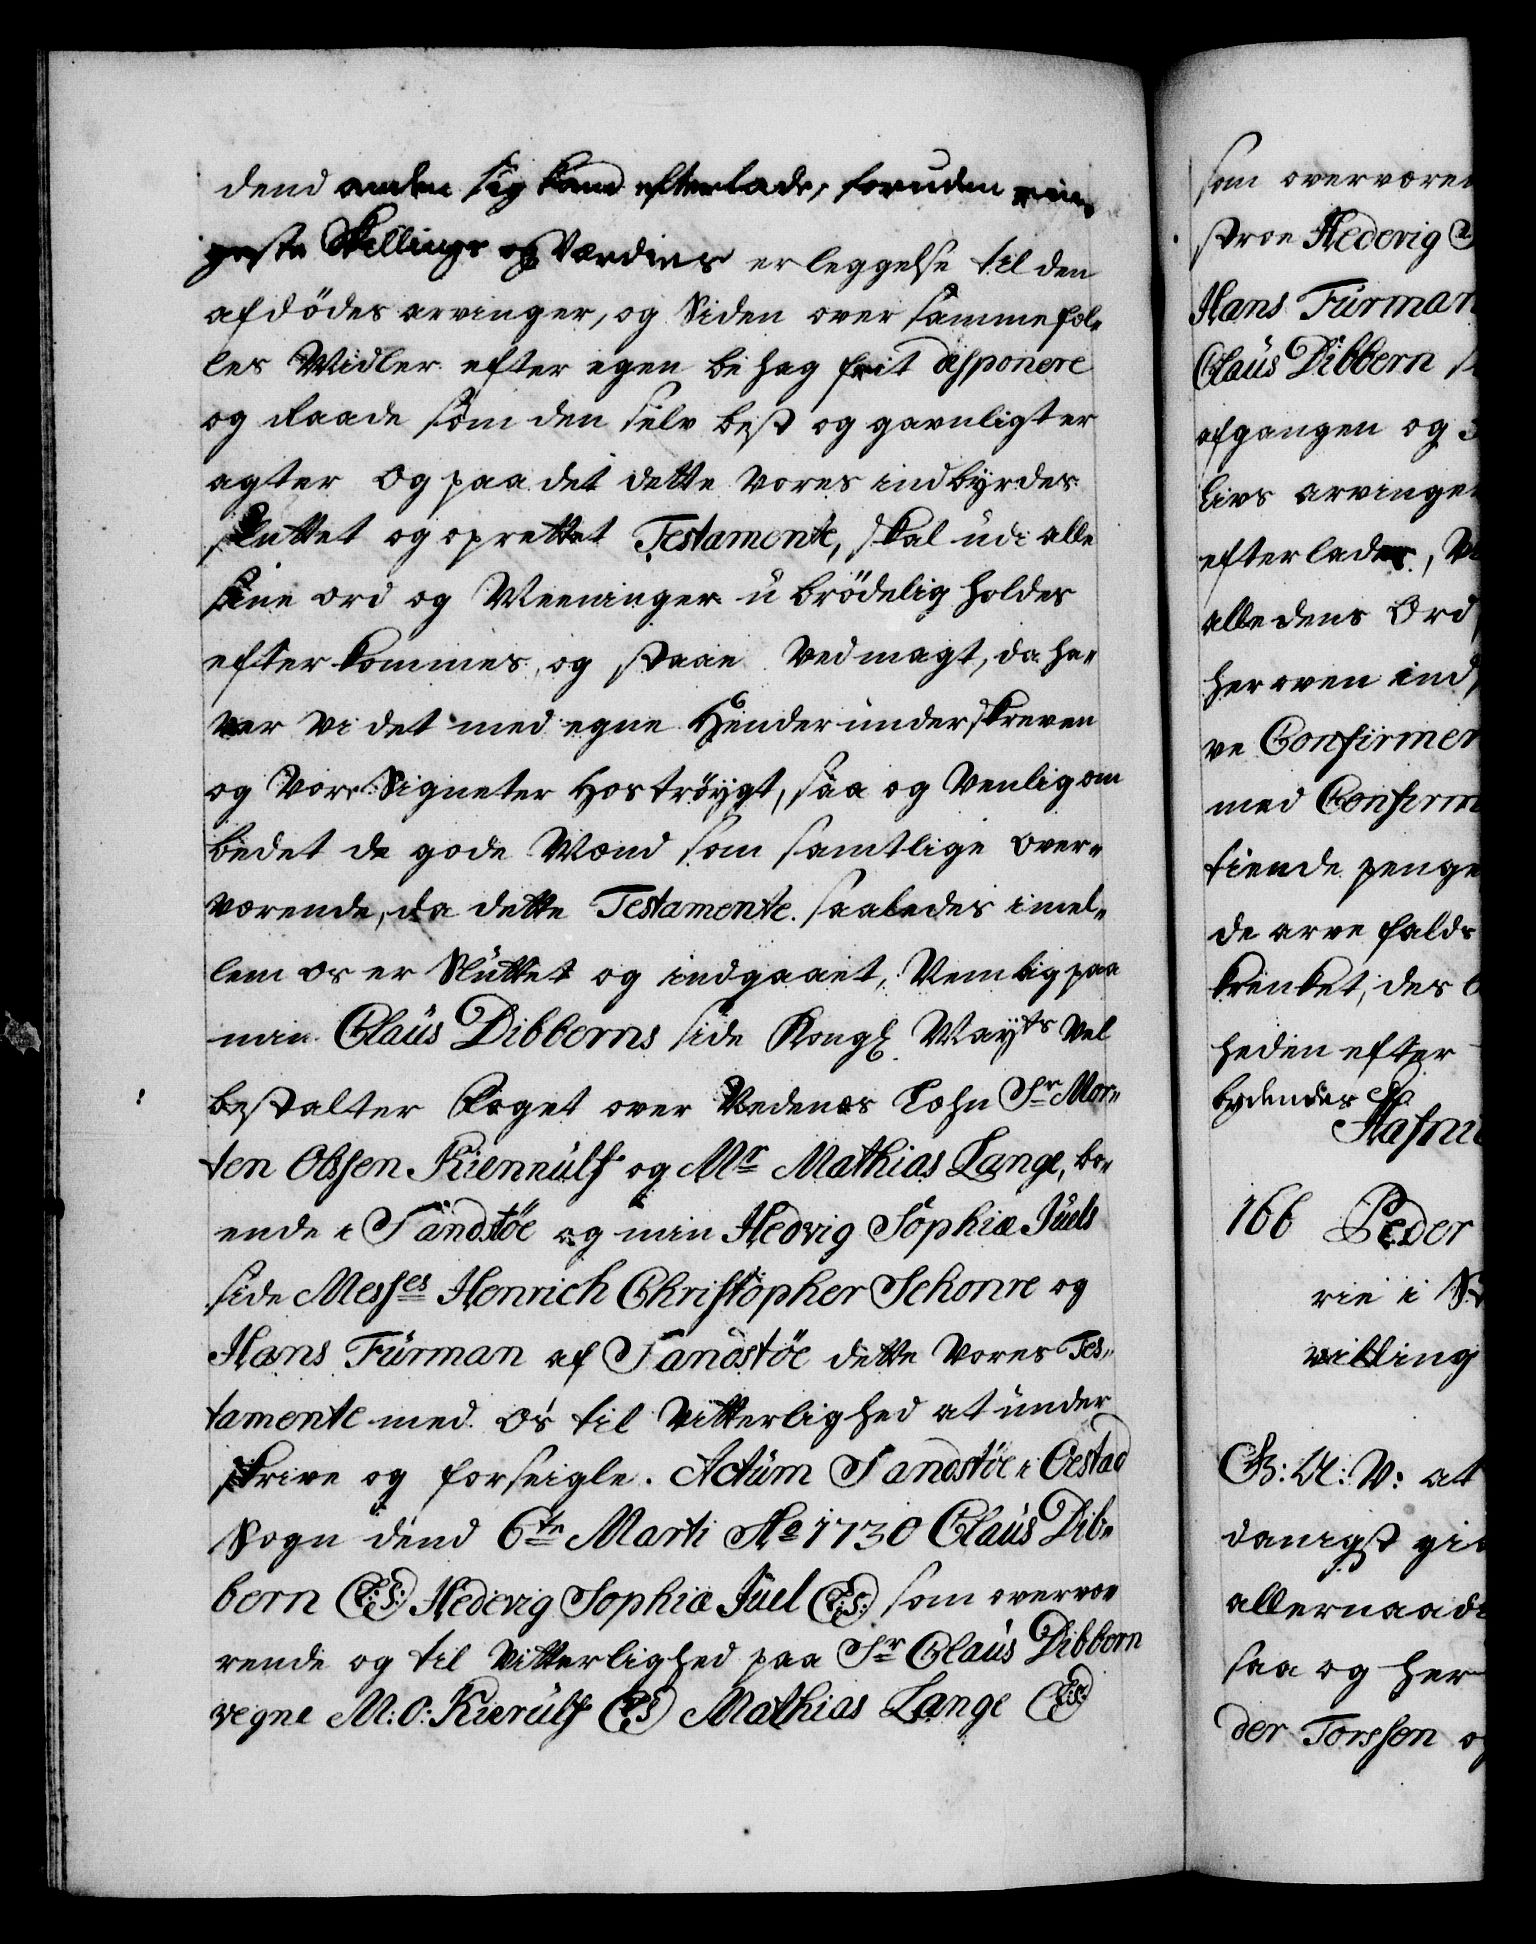 dend anden sig kand efterlade, foruden rin„
geste Skillings og Værdies erleggelse til den
afdödes arvinger, og Siden over samme fæl„
les Midler efter egen behag frit disponere
og Raade som den selv best og gavnligst er
agter Og paa det dette vores indbyrdes
sluttet og oprettet Testamente, skal udi alle
sine ord og Meeninger ubrödelig holdes
efterkommes, og staae ved magt, da ha„
ver vi det med egne Hænder underskreven
og vore Signeter hoströygt, saa og Venlig om
bedet de gode Mænd som samtlige over„
værende, da dette Testamente saaledes imel„
lem os er Sluttet og indgaaet, Nemlig paa
min Claüs Dibberns side Kongl Mayts vel
bestalter Foget over Nedenes Læhn Sr Mor„
ten Olssen Kierrulf og Mr Mathias Lange, bo„
ende i Sandstöe og min Hedvig Sophiæ Jüels
side Messes Henrich Christopher Schonre og
Hans Fürman af Sandstöe dette vores Tes„
tamente med os til vitterlighed at under
skrive og forseigle. Actüm Sandstöe i Oestad
Sogn dend 6te Marti Ao 1730 Claüs Dib„
bern (L:S:) Hedevig Sophiæ Jüel (L:S:) som overvæ
rende og til vitterlighed paa Sr Claüs Dibbern
vegne M: O: Kierülf (L:S) Mathias Lange (L:S:)
som overværen
stroe Hedevig S
Hans Fürman
Claüs Dibbern
afgangen og
livs arvinger
efterlader,
alle dens Ord
heroven ind
ve Confirmer
med Confirm
tiende penge
de arve falds
krenket, des
heden efter
bydendes
Hafni
166 Peder
rie i
villing
G: A: V: at
danigst gi
allernaad
saa og her
der Torssen o